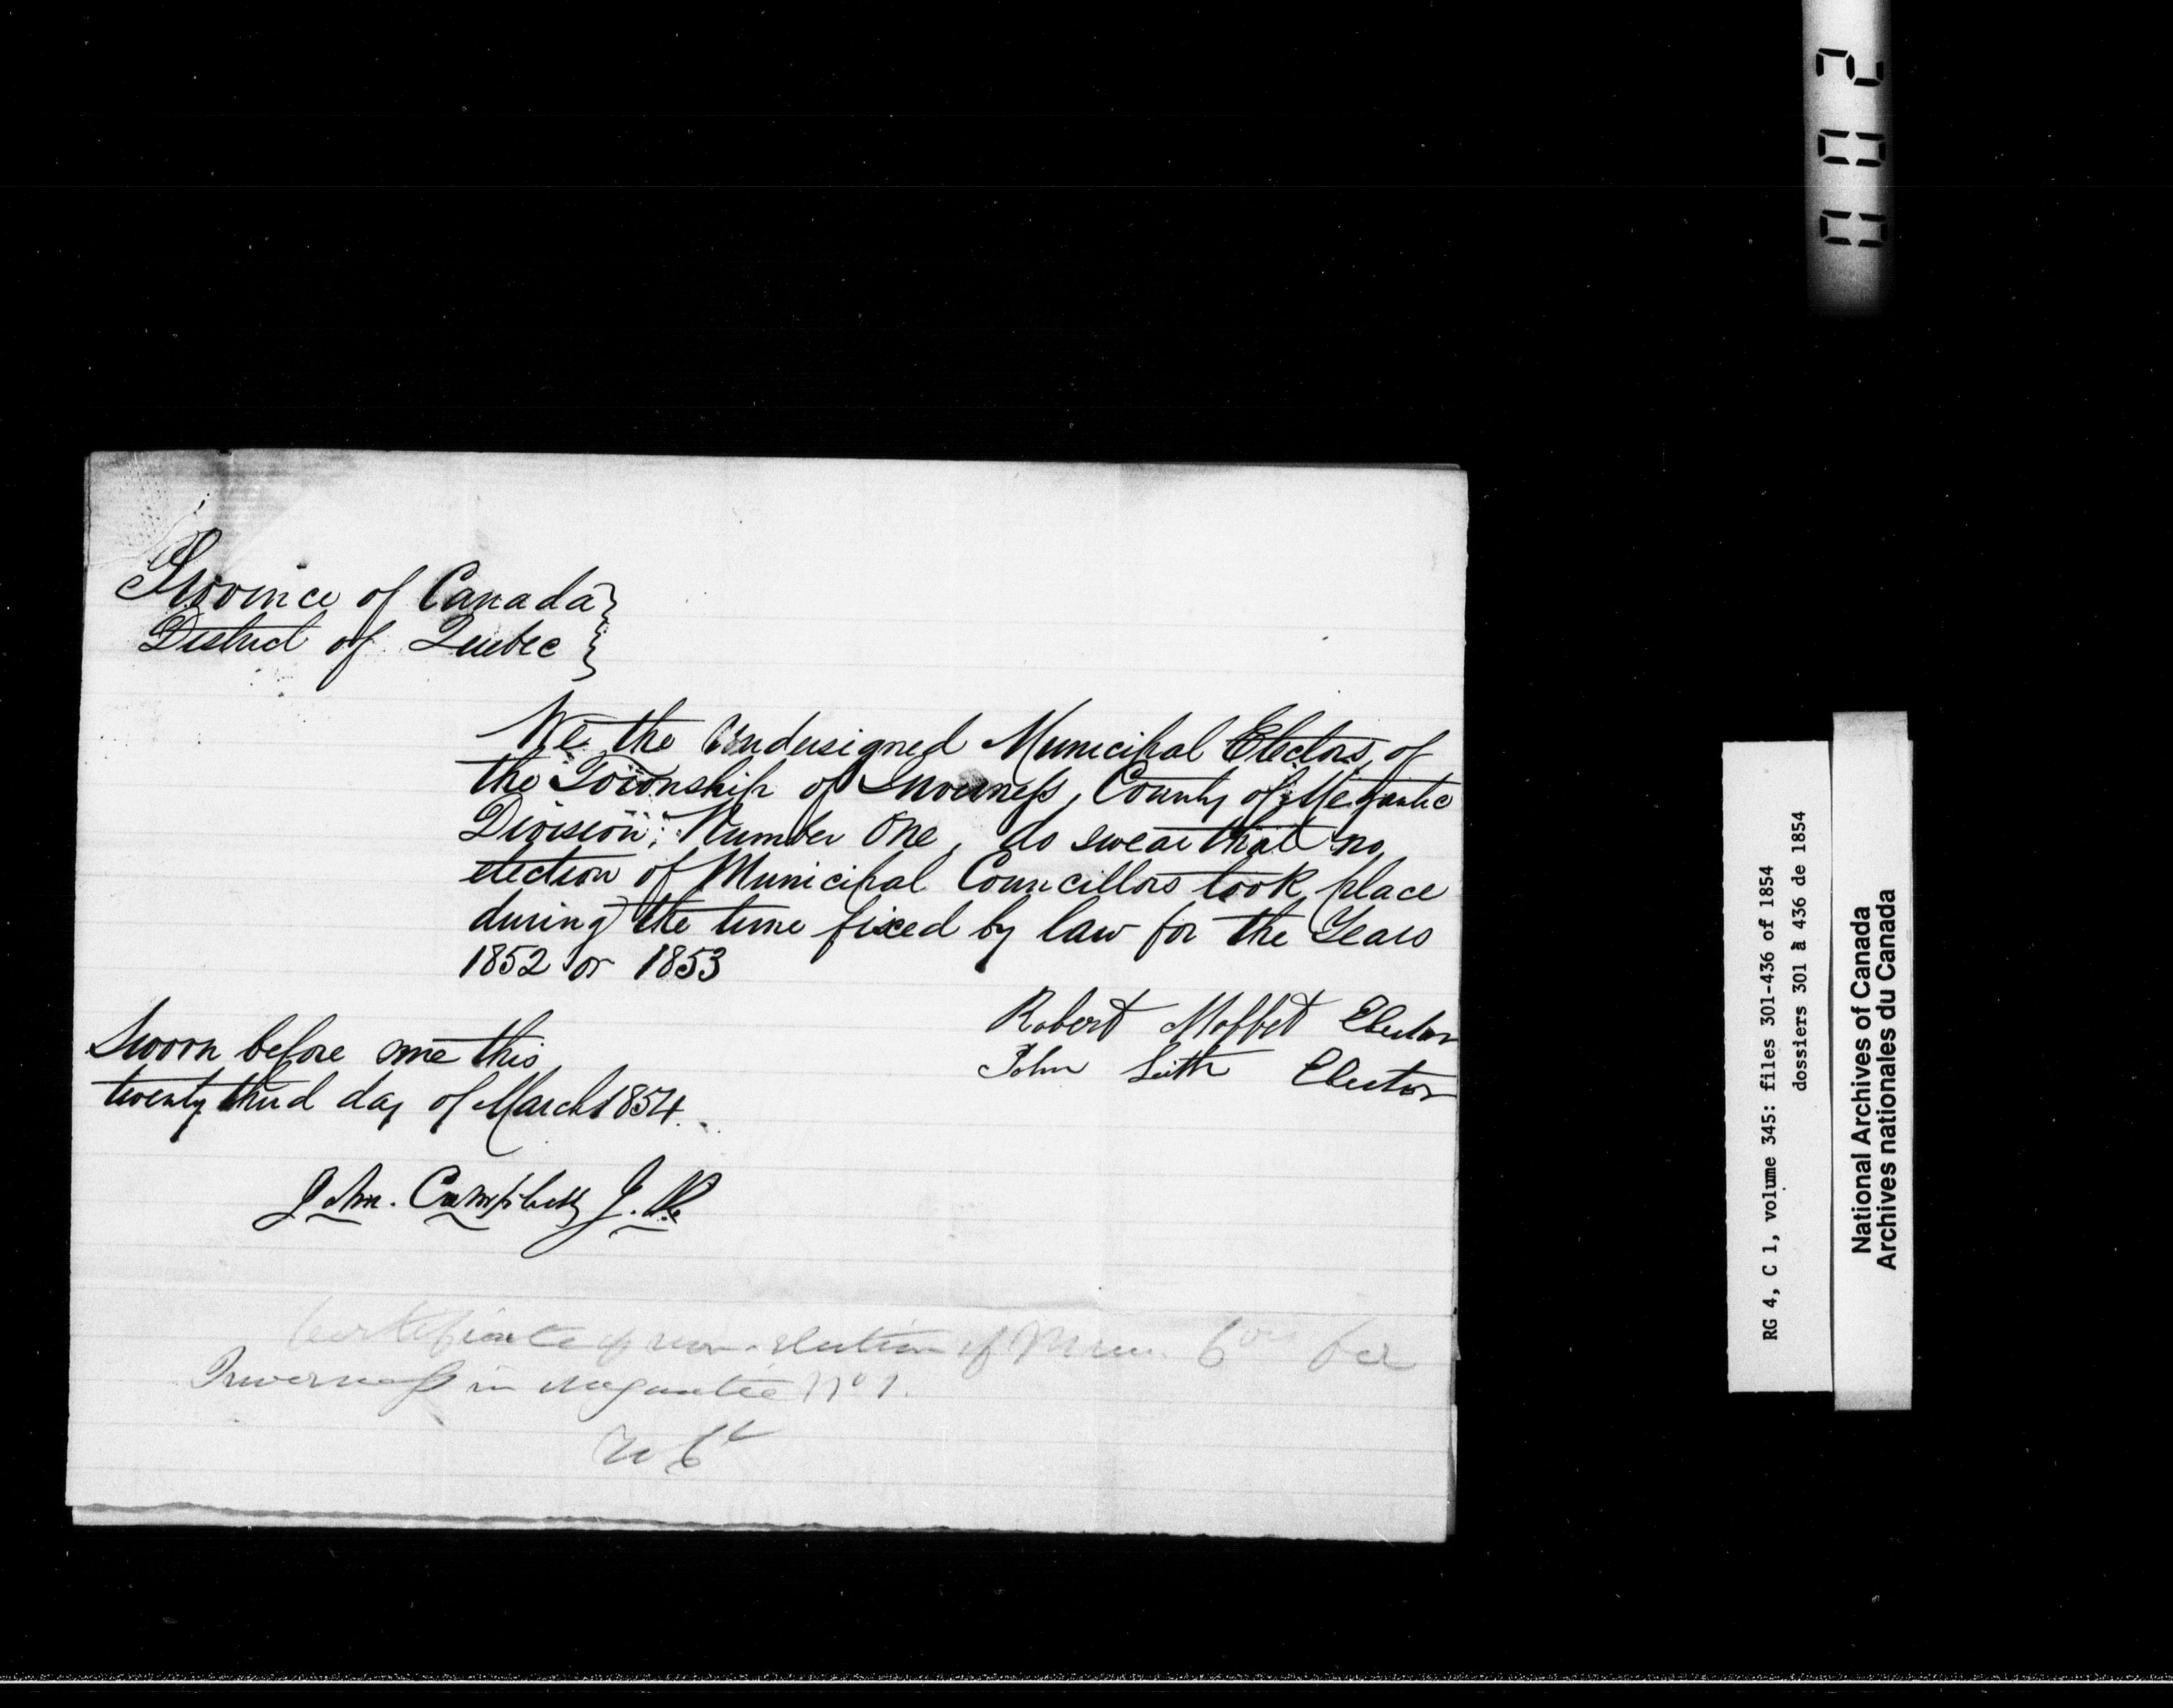 Province of Canada }
District of Quebec }
We the Undersigned Municipal Electors, of
the Township of Inverness, County of Megantic
Division: Number One, do swear that no
election of Municipal Councillors took place
during the time fixed by law for the Years
1852 or 1853
Robert Moffet Elector
John Leith Elector
Sworn before me this
twenty third day of March 1854.
John. Campbell J. P.
Certificate of non-election of Mun. for
Inverness in Megantic No 1.
RG 4, C 1, volume 345: files 301-436 of 1854
dossiers 301 à 436 de 1854
National Archives of Canada
Archives nationales du Canada
002